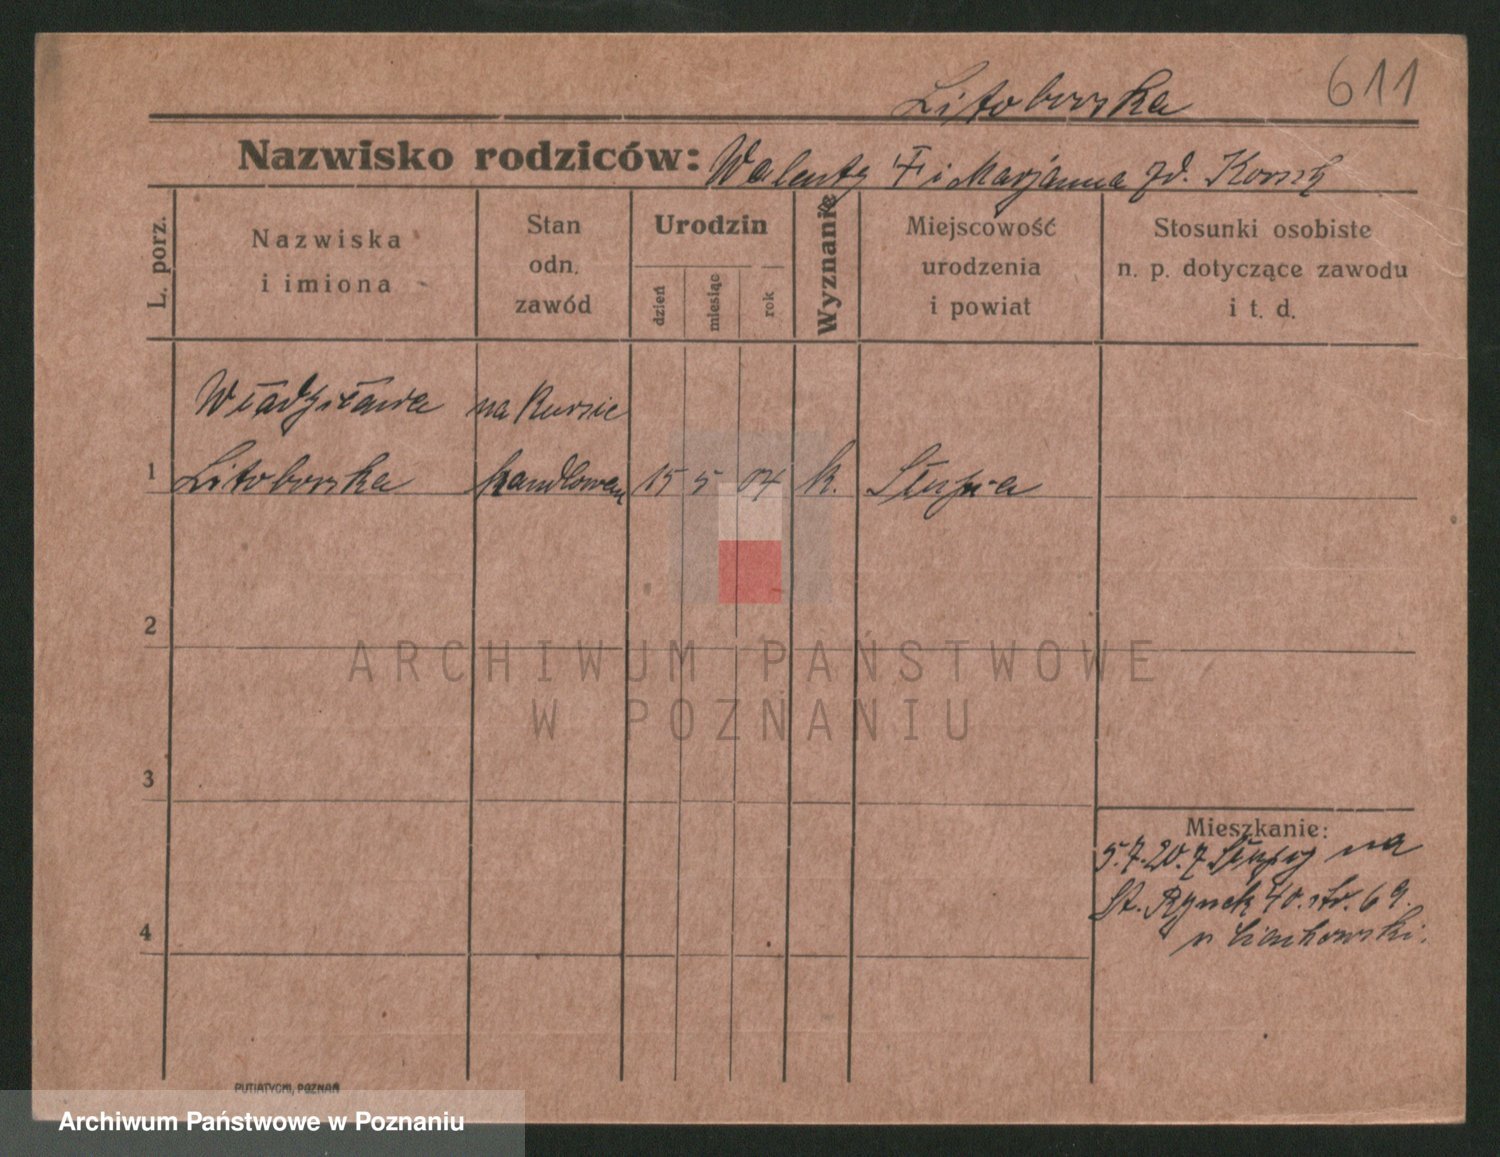 Litoborska
611
Nazwisko rodziców: Walenty † i Marjanna zd.
L. porz.
Nazwiska
i imiona
Stan
odn.
zawód
Urodzin
dzień
miesiąc
rok
Wyznanie
Miejscowość
urodzenia
i powiat
Stosunki osobiste
n. p. dotyczące zawodu
i t. d.
na kursie
1 Litoborska handlowem 15 5 04 k. Słupia
2
3
4
Mieszkanie:
5.7.20. z Słupy na
St. Rynek 40. str. 69.
PUTIATYCKI, POZNAŃ
ARCHIWUM PAŃSTWOWE
W POZNANIU
Archiwum Państwowe w Poznaniu